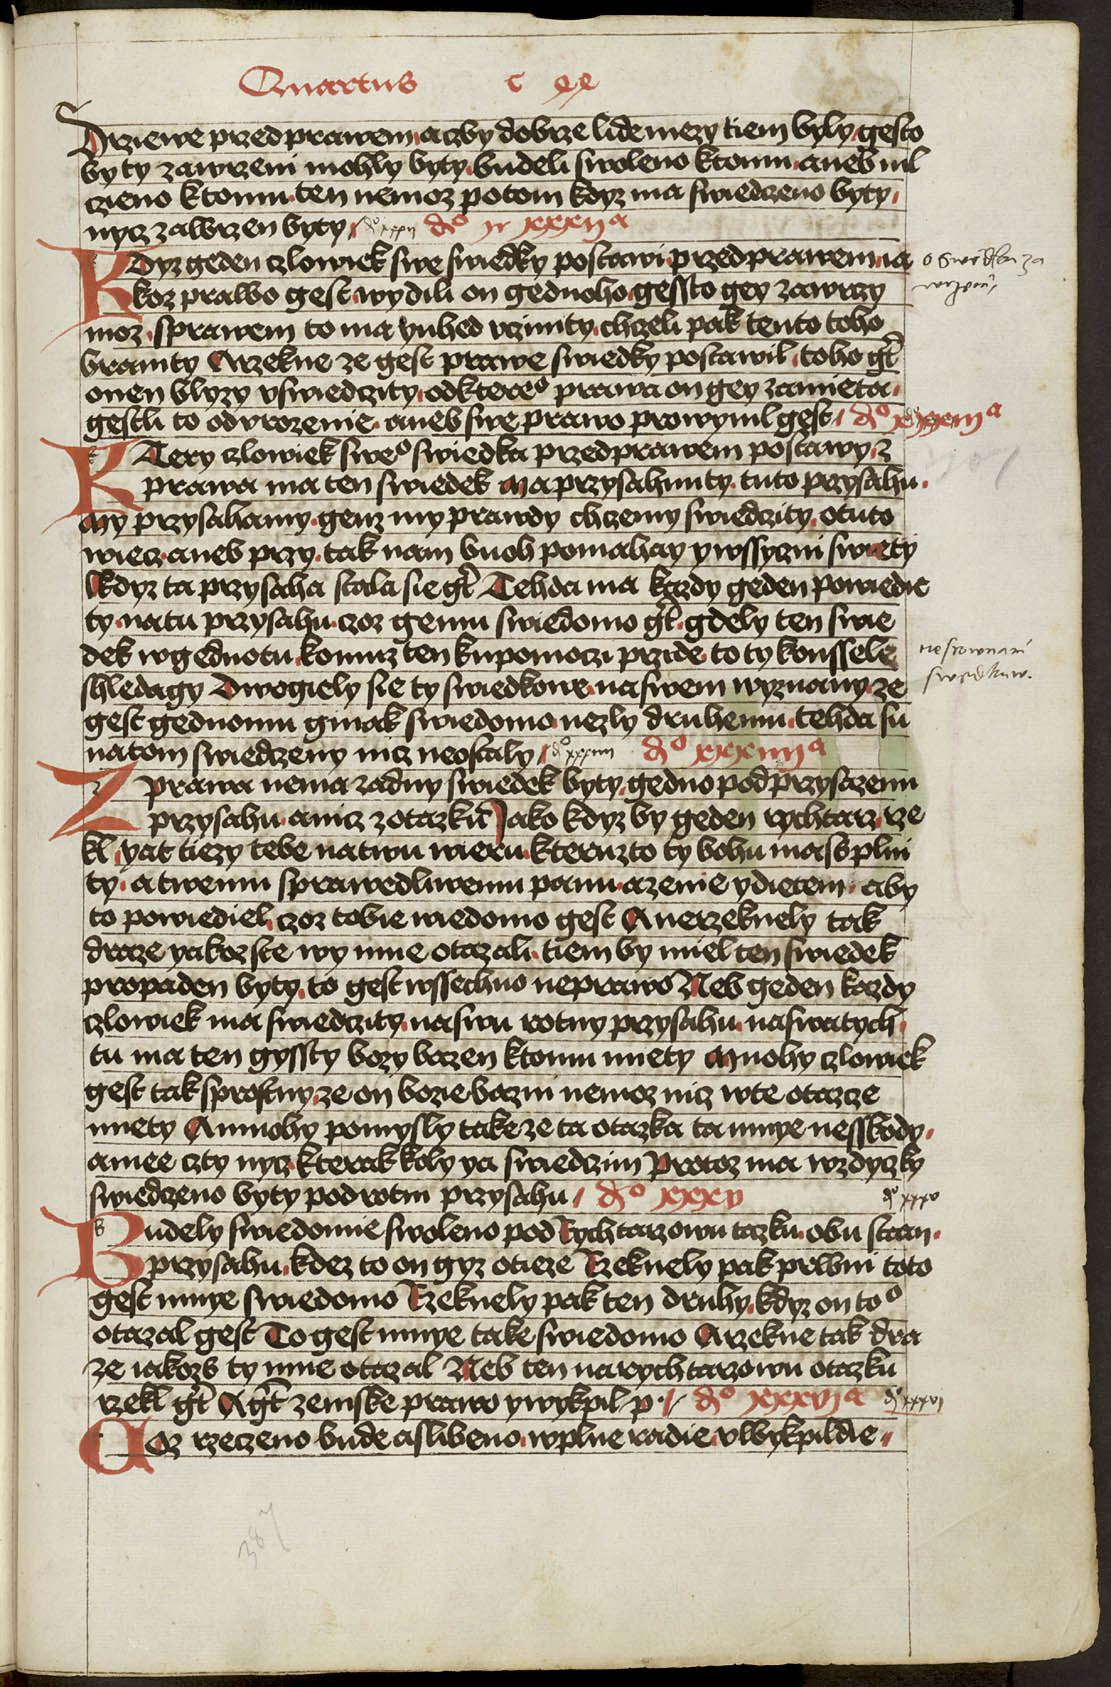 Quartus c xx
Drziewe przed prawem, aczby dobrze lide mezy tiem byly, gesto
by ty zawrzeni mohly byty. budeli swoleno ktomu. aneb uil
czieno ktomu. ten nemoz potom kdyz ma swiedczeno byty,
nycz zawrzen byty, do xxxii do xxxii a
Kdyz geden czlowiek swe swiedky postawi, przed prawem, ia
koz prawo gest. wydili on gednoho, gessto gey zawrzy
moz. sprawem to ma yuhed vcziniti, chczeli pak tento toho
branity A rzekne ze gest prawe swiedky postawil, toho gt
onen blyzy vswiedczity, odktereo prawa on gey zamieta,
gestli to od vrozenie. aneb swe prawo prowynil gest, do xxxiii a
o swiedka za
Ktery czlowiek sweo swiedka przed prawem postawy, z
prawa ma ten swiedek Ma przysahnuty. tuto przysahu.
My przysahamy. genz my prawdy chczemy swiedczity. otuto
wiecz. aneb przy. tak nam buoh pomahay y wssyczni swiety
Kdyz ta przysaha stala sie gt Tehda ma kazdy geden powiedie
ty. natu przysahu. czoz gemu swiedomo gt. gdely ten swie
dek wgednotu. komuz ten kupomoczi przide. to ty konssele
shledagy Dwogiely sie ty swiedkowe. na swem wyznany. ze
gest gednomu ginak swiedomo. nezly druhemu. tehda su
natom swiedczeny nicz neostaly, do xxxiiii do xxxiiii a
nesrownani
swedkuw.
Z prawa nema zadny swiedek byty, gedno pod przysczenu
przysahu. anicz z otazku Jako kdyz by geden rychtarz, rze
kl, yat tiezy tebe na twu wieru. kteruzto ty bohu mass plni
ty, a twemu sprawedliwemu panu. a zenie y dietem. aby
to powiediel. czoz tobie wiedomo gest A nerzeknely tak
draze yakoz ste wy mne otazali. tiem by miel ten swiedek
propaden byty, to gest wssechno neprawo Neb geden kazdy
czlowiek ma swiedczity. na swu rotny przysahu. na swatych.
tu ma ten gyssty bozy bazen ktomu mety Mnohy czlowiek
gest tak sprostny, ze on bozie bazni nemoz nicz wte otazcze
mety A mnohy pomysly take ze ta otazka ta mnye nesskody,
a mee czty nycz. kterak koly ya swiedczim Protoz ma wzdyczky
swiedczeno byty pod rotni przysahu, do xxxv do xxxv
Budely swiedomie swoleno pod Rychtarzowu tazku. obu stran.
przysahu. kdez to on gyz otieze Rzeknely pak prwni toto
gest mnye swiedomo Rzeknely pak ten druhy, kdyz on too
otazal gest To gest mnye take swiedomo A rzekne tak dra
ze iakozs ty mne otazal Neb ten na rychtarzowu otazku
rzekl gt A gt zemske prawo y wykpil p. do xxxvi a do xxxvi
Coz rzeczeno bude a slibeno. wplne radie. v Wykpildie,
387